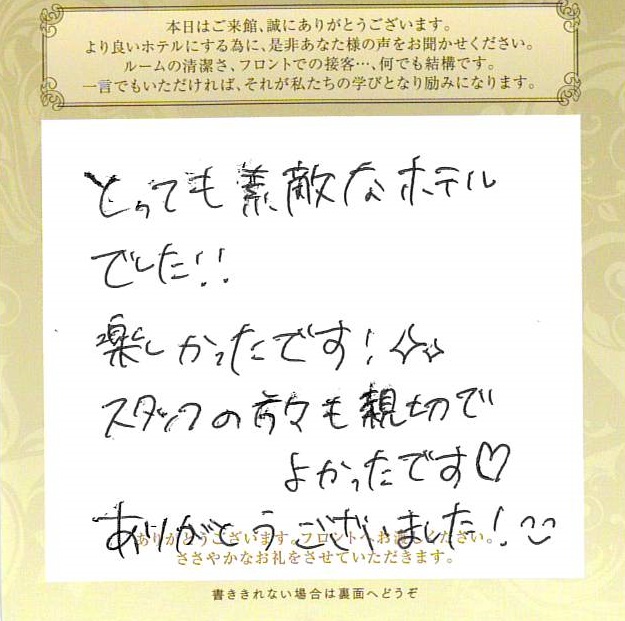 本日はご来館、誠にありがとうございます。
より良いホテルにする為に、是非あなた様の声をお聞かせください。
ルームの清潔さ、フロントでの接客…、何でも結構です。
一言でもいただければ、それが私たちの学びとなり励みになります。
とっても素敵なホテル
でした!!
楽しかったです!✧✧
スタッフの方々も親切で
よかったです♡
ありがとうございました!
ありがとうございます。フロントへお渡しください。
ささやかなお礼をさせていただきます。
書ききれない場合は裏面へどうぞ